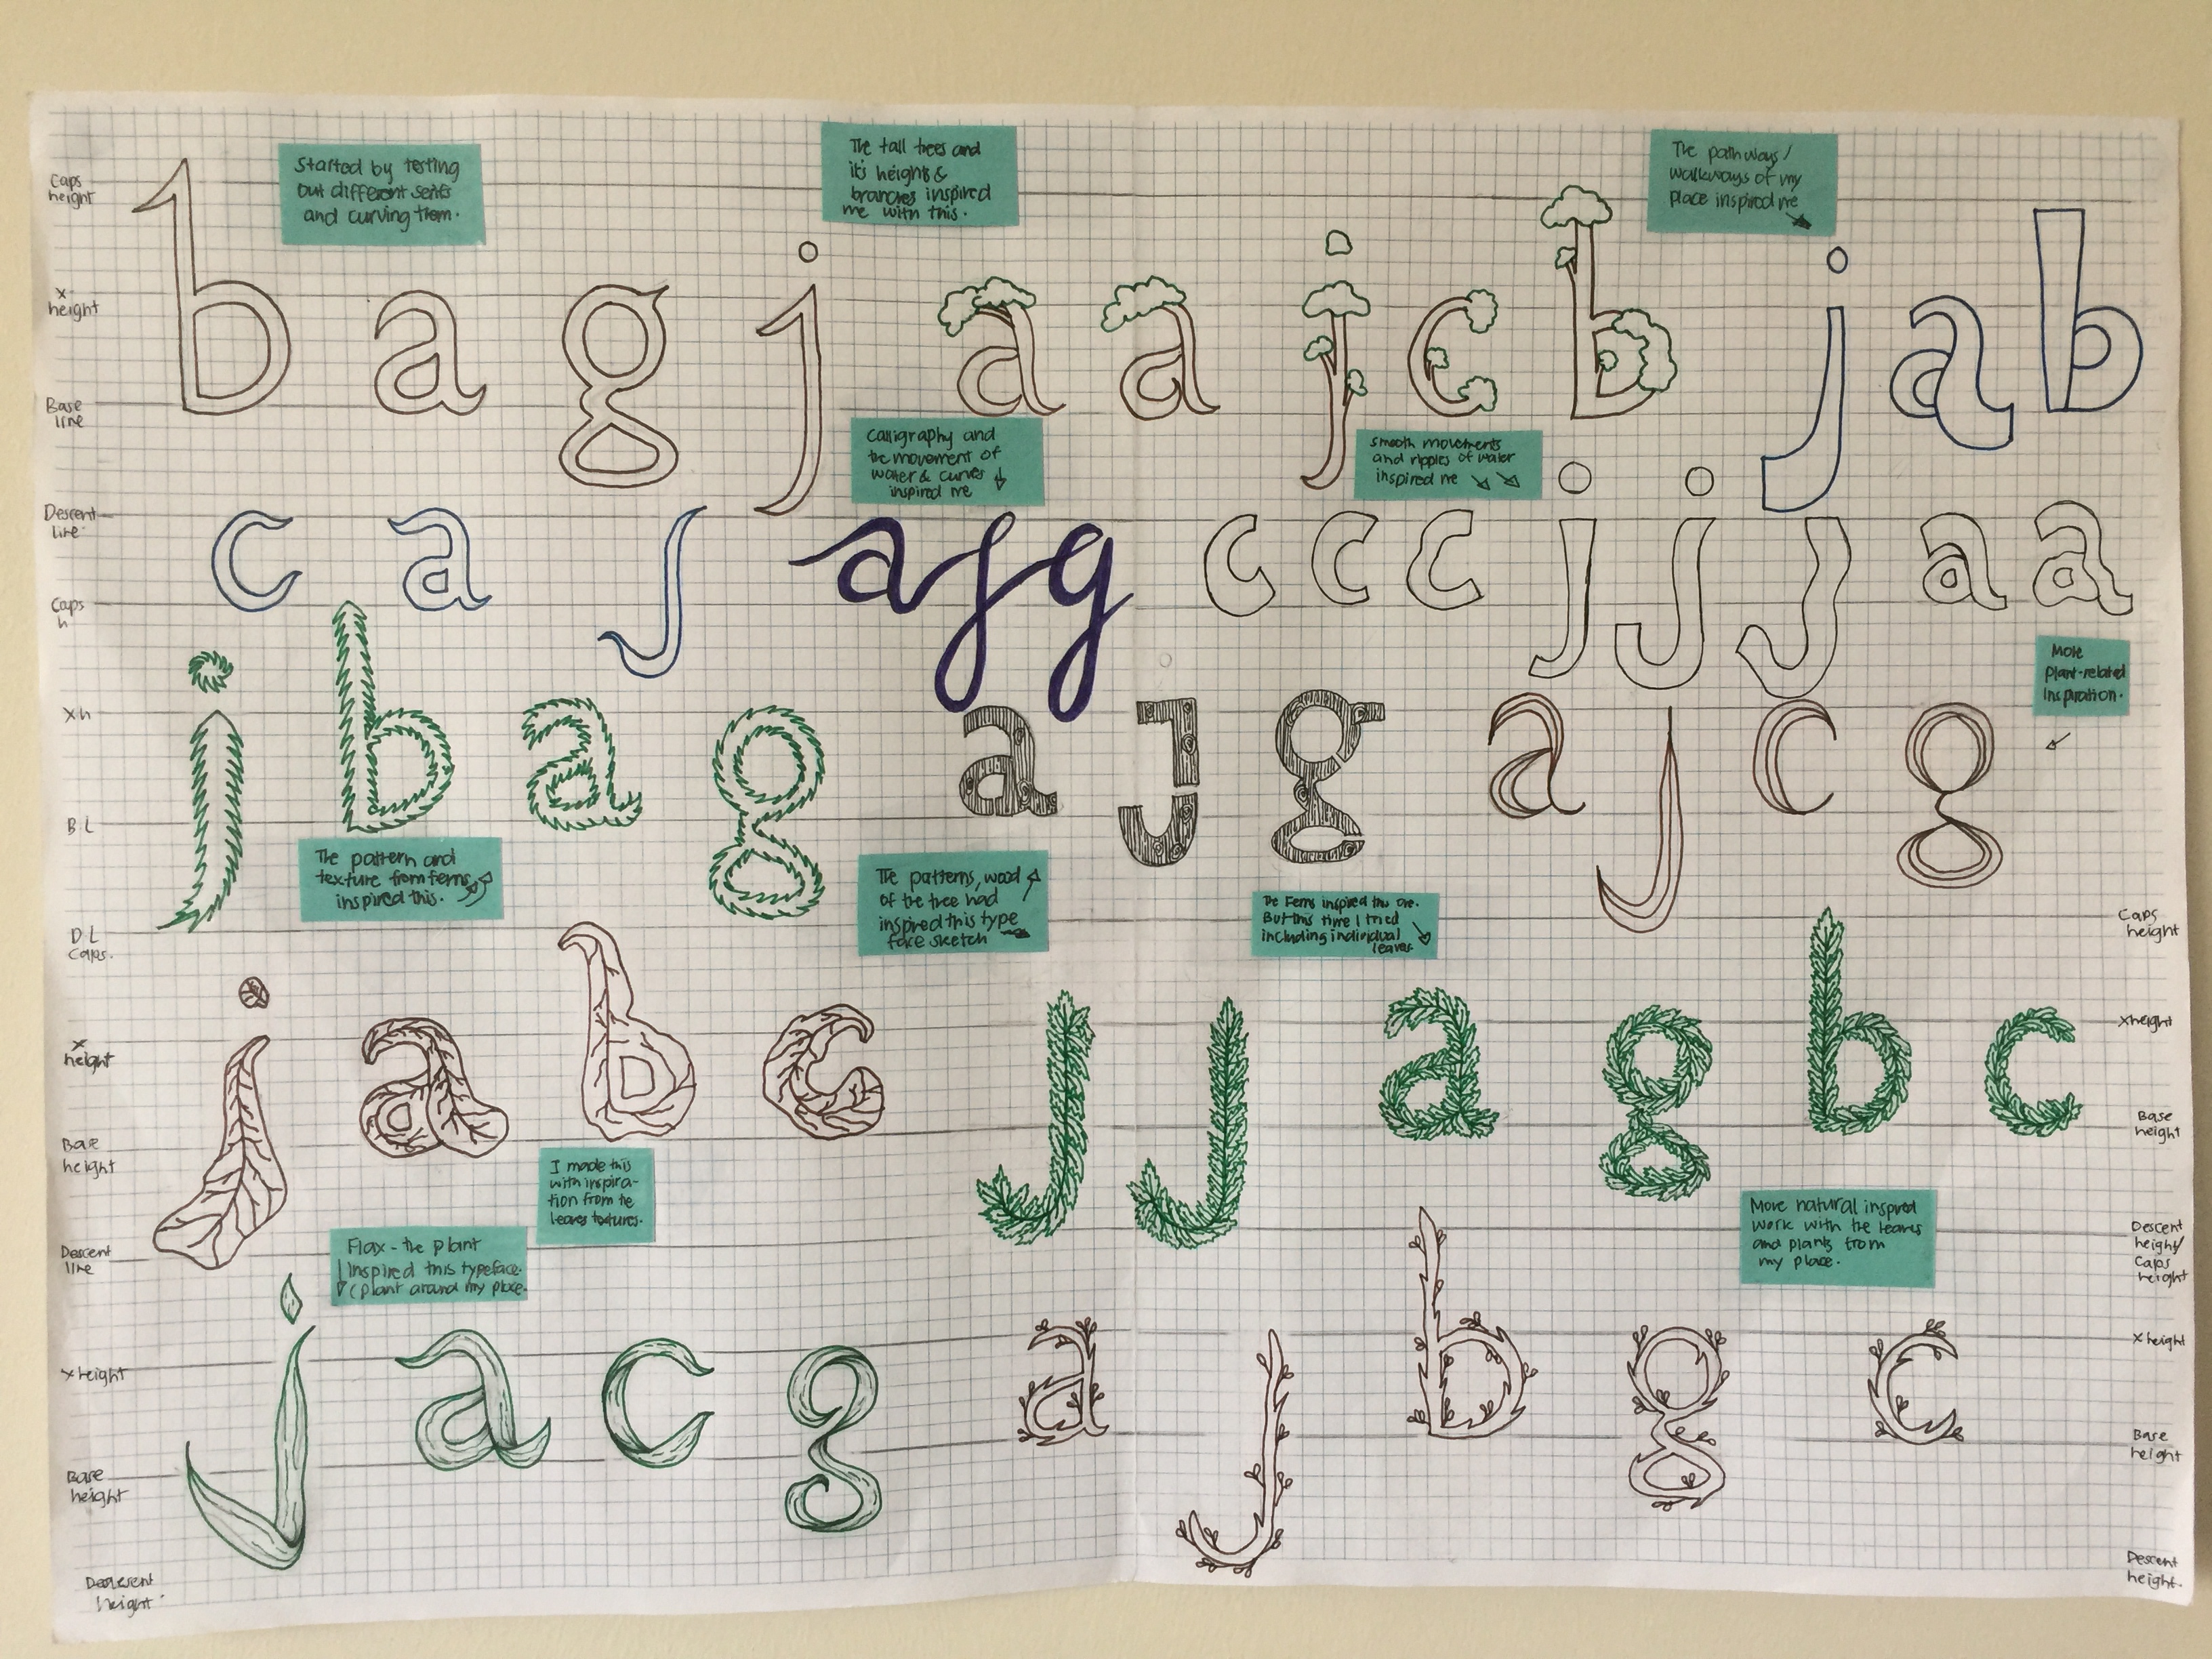 Caps
height
Started by testing
out different serifs
and curving them.
The tall trees and
it's heights &
branches inspired
me with this.
The pathways/
walkways of my
place inspired me
x
height
Base
line
b a g j a a j c b j a b
Calligraphy and
the movement of
water & curves
inspired me
Smooth movements
and ripples of water
inspired me
Descent
line
c a j a j g c c c j j j a a
Caps
h
More
plant-related
inspiration.
x h
j b a g a J g a j c g
B L
The pattern and
texture from ferns
inspired this.
The patterns, wood
of the tree had
inspired this type
face sketch
The Ferns inspired this one.
But this time I tried
including individual
leaves
D L
Caps.
Caps
height
x
height
x height
j a b c j j a g b c
Base
height
Base
height
I made this
with inspira-
tion from the
leaves textures.
More natural inspired
work with the leaves
and plants from
my place.
Descent
line
Descent
height/
Caps
height
Flax - the plant
inspired this typeface.
(plant around my place.
x height
x height
j a c g a j b g c
Base
height
Base
height
height.
Descent
height.